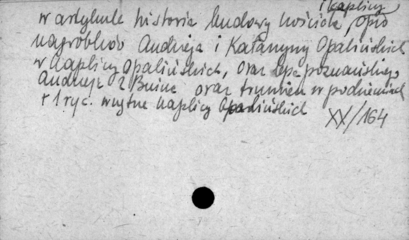 i kaplicy
w artykule historia budowy kościoła, opis
nagrobków Andrzeja i Katarzyny Opalińskich
w kaplicy Opalińskich, oraz bpa poznańskiego
Andrzeja z Bnina oraz trumien w podziemiach
+ 1 ryc. wnętrze kaplicy Opalińskich XX/164